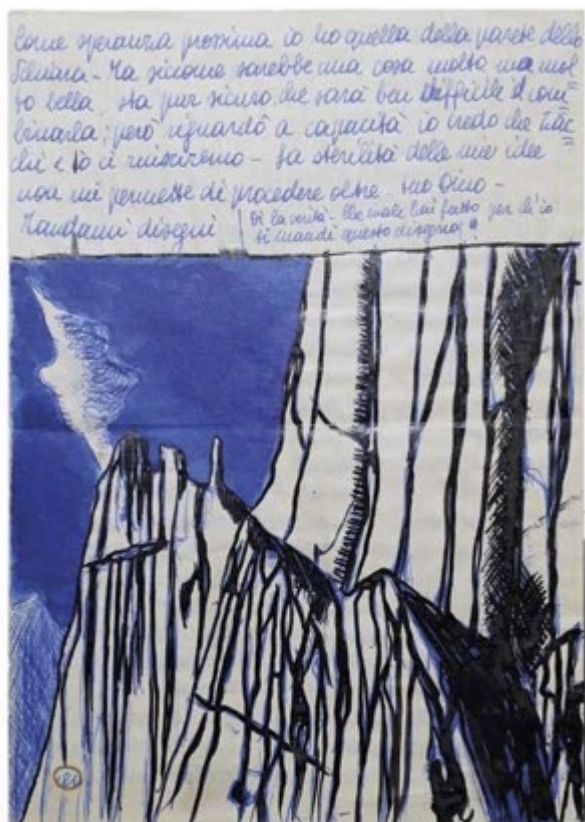 Come speranza prossima io ho quella della parete della
Schiara - Ma siccome sarebbe una cosa molto ma mol
to bella sta pur sicuro che sarà ben difficile il com=
binarla; però riguardo a capacità io credo che
chi e io ci riusciremo - La sterilità delle mie idee
non mi permette di procedere oltre. tuo Dino -
Mandami disegni
Di la verità - che male hai fatto per ch'io
ti mandi questo disegno?